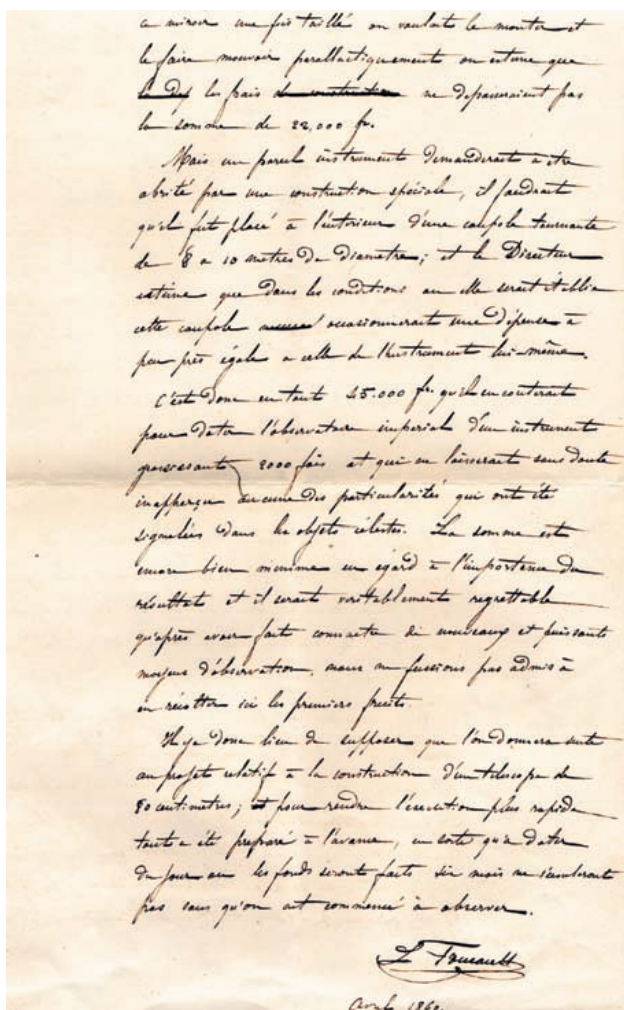 ce miroir une fois taillé on voulait le monter et
le faire mouvoir parallactiquement on estime que
les frais de construction ne dépasseraient pas
la somme de 22,000 fr.
Mais un pareil instrument demanderait à être
abrité par une construction spéciale, il faudrait
qu'il fut placé à l'intérieur d'une coupole tournante
de 8 a 10 metres de diametre; et le Directeur
estime que dans les conditions ou elle serait établie
cette coupole occasionnerait une dépense à
peu près égale a celle de l'instrument lui-même.
C'est donc en tout 45.000 fr. qu'il en couterait
pour doter l'observatoire imperial d'un instrument
grossissant 2000 fois et qui ne laisserait sans doute
inapperçu aucune des particularités qui ont été
signalées dans les objets célestes. La somme est
encore bien minime en égard à l'importance du
résultat et il serait veritablement regrettable
qu'après avoir fait connaitre de nouveaux et puissants
moyens d'observation, nous ne fussions pas admis à
en récolter ici les premiers fruits.
Il y a donc lieu de supposer que l'on donnera suite
au projet relatif à la construction d'un telescope de
80 centimetres; et pour rendre l'execution plus rapide
tout a été preparé à l'avance, en sorte qu'a dater
du jour ou les fonds seront faits six mois ne s'écouleront
pas sans qu'on ait commencé à observer.
L Foucault
Avril 1860.